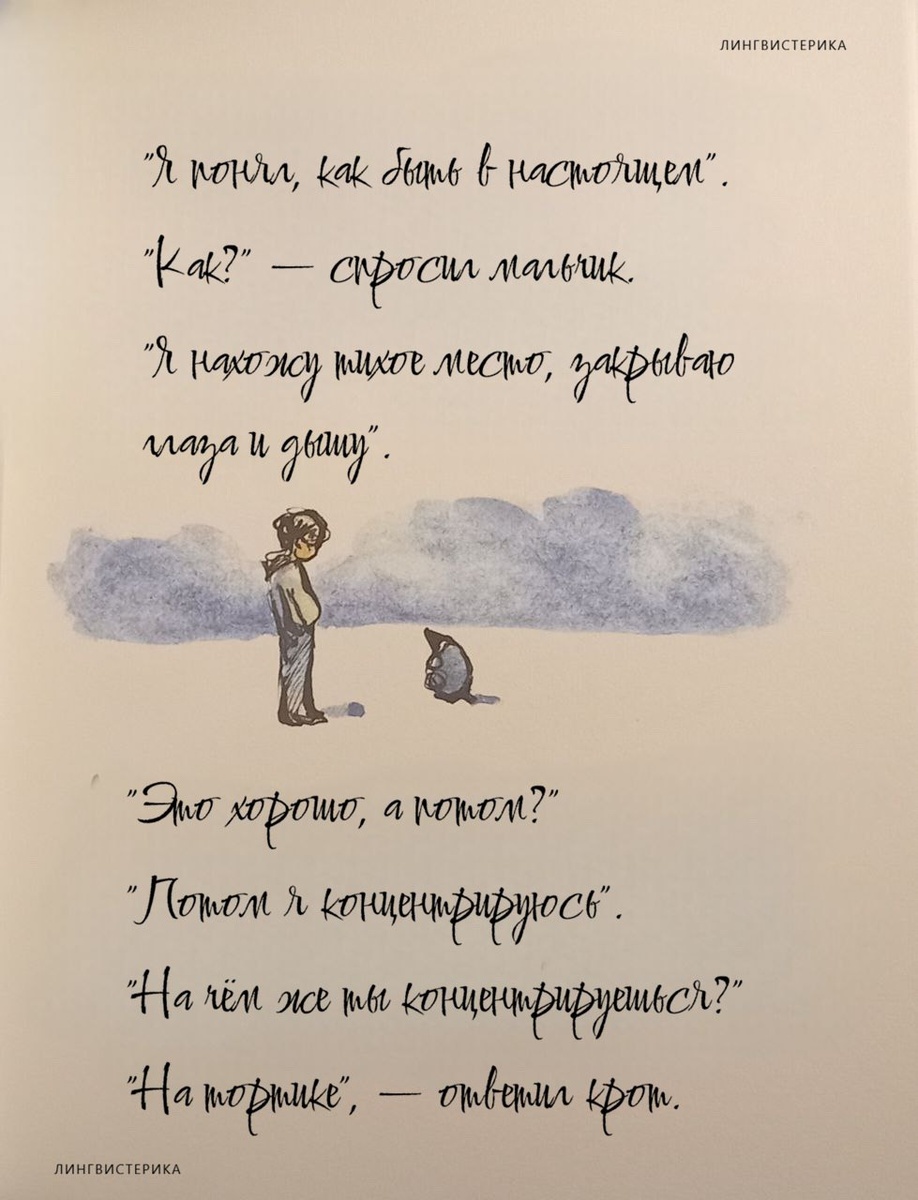 ЛИНГВИСТЕРИКА
"Я понял, как быть в настоящем".
"Как?" — спросил мальчик.
"Я нахожу тихое место, закрываю
глаза и дышу".
"Это хорошо, а потом?"
"Потом я концентрируюсь".
"На чём же ты концентрируешься?"
"На тортике", — ответил крот.
ЛИНГВИСТЕРИКА